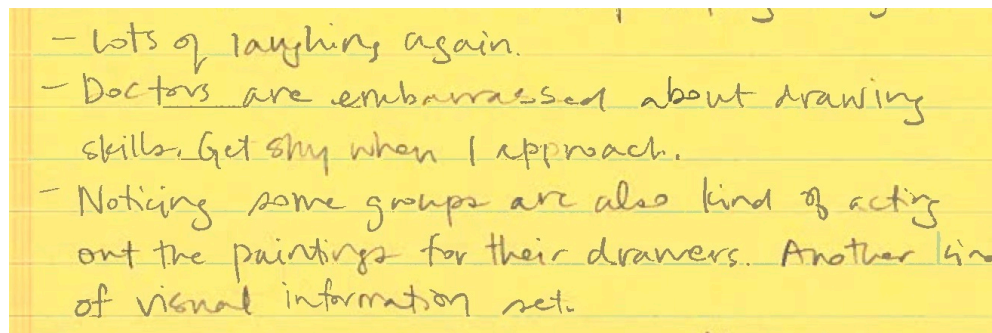 - Lots of laughing again.
- Doctors are embarrassed about drawing
skills. Get shy when I approach.
- Noticing some groups are also kind of acting
out the paintings for their drawers. Another kind
of visual information set.